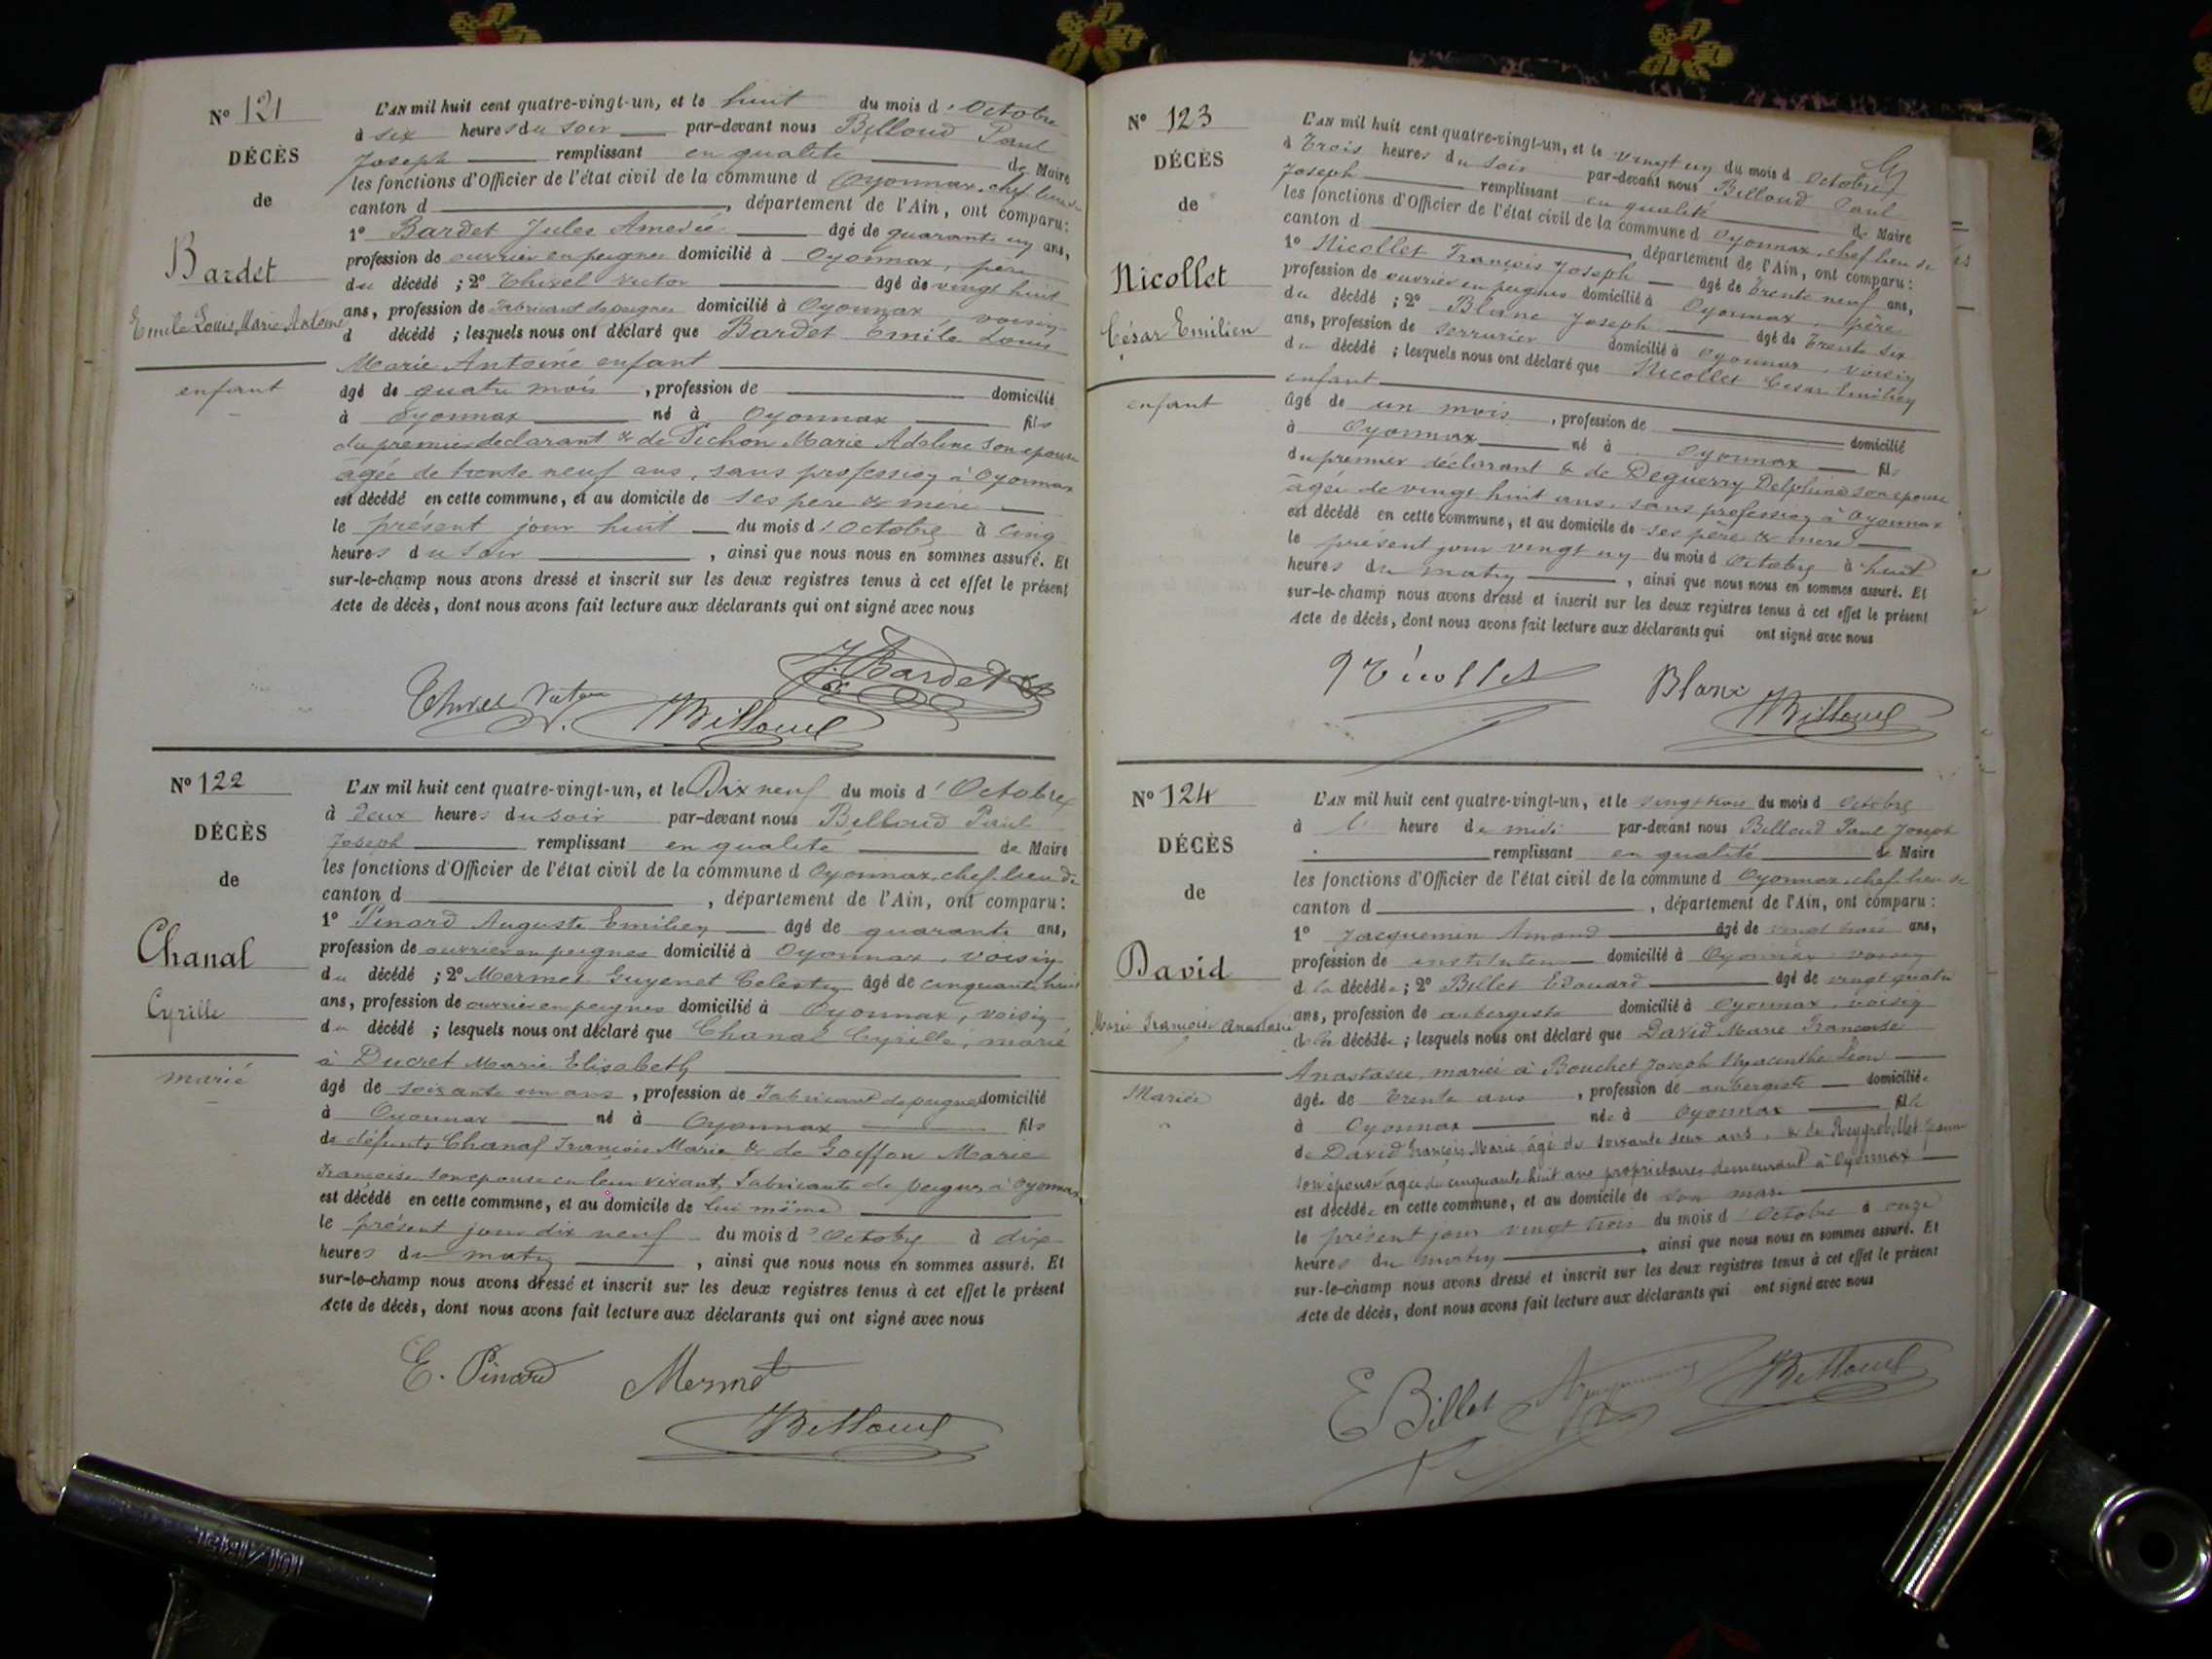 N° 121
DÉCÈS
de
Bardet
Emile Louis, Marie, Antoine
enfant
L'AN mil huit cent quatre-vingt-un, et le huit du mois d'Octobre
à six heures du soir par-devant nous Billoud Paul
Joseph remplissant en qualité de Maire
les fonctions d'Officier de l'état civil de la commune d Oyonnax, chef lieu de
canton d , département de l'Ain, ont comparu:
1° Bardet Jules Amedée âgé de quarante un ans,
profession de ouvrier en peignes domicilié à Oyonnax, père
du décédé ; 2° Victor âgé de vingt huit
ans, profession de Fabricant de peignes domicilié à Oyonnax, voisin
d décédé ; lesquels nous ont déclaré que Bardet Emile Louis
Marie Antoine enfant
âgé de quatre mois , profession de domicilié
à Oyonnax né à Oyonnax fils
du premier declarant & de Pichon Marie Adeline son epouse
agée de trente neuf ans, sans profession à Oyonnax
est décédé en cette commune, et au domicile de ses pere & mere
le présent jour huit du mois d'Octobre à cinq
heures du soir , ainsi que nous nous en sommes assuré. Et
sur-le-champ nous avons dressé et inscrit sur les deux registres tenus à cet effet le présent
Acte de décès, dont nous avons fait lecture aux déclarants qui ont signé avec nous
J. Bardet
Billoud
N° 122
DÉCÈS
de
Chanal
Cyrille
marié
L'AN mil huit cent quatre-vingt-un, et le Dix neuf du mois d'Octobre
à deux heures du soir par-devant nous Billoud Paul
Joseph remplissant en qualité de Maire
les fonctions d'Officier de l'état civil de la commune d Oyonnax, chef lieu de
canton d , département de l'Ain, ont comparu:
1° Pinard Auguste Emilien âgé de quarante ans,
profession de ouvrier en peignes domicilié à Oyonnax, voisin
du décédé ; 2° Mermet Guyenet Celestin âgé de cinquante huit
ans, profession de ouvrier en peignes domicilié à Oyonnax, voisin
du décédé ; lesquels nous ont déclaré que Chanal Cyrille, marié
à Ducret Marie Elisabeth
âgé de soixante un ans , profession de Fabricant de peignes domicilié
à Oyonnax né à Oyonnax fils
de défunts Chanal François Marie & de Goiffon Marie
Françoise son epouse en leur vivant, Fabricants de peignes à Oyonnax
est décédé en cette commune, et au domicile de lui même
le présent jour dix neuf du mois d'Octobre à dix
heures du matin , ainsi que nous nous en sommes assuré. Et
sur-le-champ nous avons dressé et inscrit sur les deux registres tenus à cet effet le présent
Acte de décès, dont nous avons fait lecture aux déclarants qui ont signé avec nous
E. Pinard Mermet
Billoud
N° 123
DÉCÈS
de
Nicollet
César Emilien
enfant
L'AN mil huit cent quatre-vingt-un, et le vingt un du mois d Octobre
à Trois heures du soir par-devant nous Billoud Paul
Joseph remplissant en qualité de Maire
les fonctions d'Officier de l'état civil de la commune d Oyonnax, chef lieu de
canton d , département de l'Ain, ont comparu:
1° Nicollet François Joseph âgé de trente neuf ans,
profession de ouvrier en peignes domicilié à Oyonnax, père
du décédé ; 2° Blanc Joseph âgé de trente six
ans, profession de serrurier domicilié à Oyonnax, voisin
du décédé ; lesquels nous ont déclaré que Nicollet César Emilien
enfant
âgé de un mois , profession de domicilié
à Oyonnax né à Oyonnax fils
du premier déclarant & de Deguerry Delphine son epouse
agée de vingt huit ans, sans profession à Oyonnax
est décédé en cette commune, et au domicile de ses père & mere
le présent jour vingt un du mois d Octobre à huit
heures du matin , ainsi que nous nous en sommes assuré. Et
sur-le-champ nous avons dressé et inscrit sur les deux registres tenus à cet effet le présent
Acte de décès, dont nous avons fait lecture aux déclarants qui ont signé avec nous
Nicollet Blanc
Billoud
N° 124
DÉCÈS
de
David
Marie Françoise Anastasie
Mariée
L'AN mil huit cent quatre-vingt-un, et le vingt trois du mois d Octobre
à l' heure de midi par-devant nous Billoud Paul Joseph
remplissant en qualité de Maire
les fonctions d'Officier de l'état civil de la commune d Oyonnax, chef lieu de
canton d , département de l'Ain, ont comparu:
1° Jacquemin Amand âgé de vingt trois ans,
profession de instituteur domicilié à Oyonnax voisin
de la décédée ; 2° Billet Edouard âgé de vingt quatre
ans, profession de aubergiste domicilié à Oyonnax, voisin
de la décédée ; lesquels nous ont déclaré que David Marie Françoise
Anastasie, mariée à Bouchet Joseph Hyacinthe Léon
âgée de trente ans , profession de aubergiste domiciliée
à Oyonnax née à Oyonnax fille
de David François Marie, âgé de soixante deux ans, & de Reygrobellet
son épouse âgée de cinquante huit ans propriétaires demeurant à Oyonnax
est décédée en cette commune, et au domicile de son mari
le présent jour vingt trois du mois d'Octobre à onze
heures du matin , ainsi que nous nous en sommes assuré. Et
sur-le-champ nous avons dressé et inscrit sur les deux registres tenus à cet effet le présent
Acte de décès, dont nous avons fait lecture aux déclarants qui ont signé avec nous
E Billet
Billoud